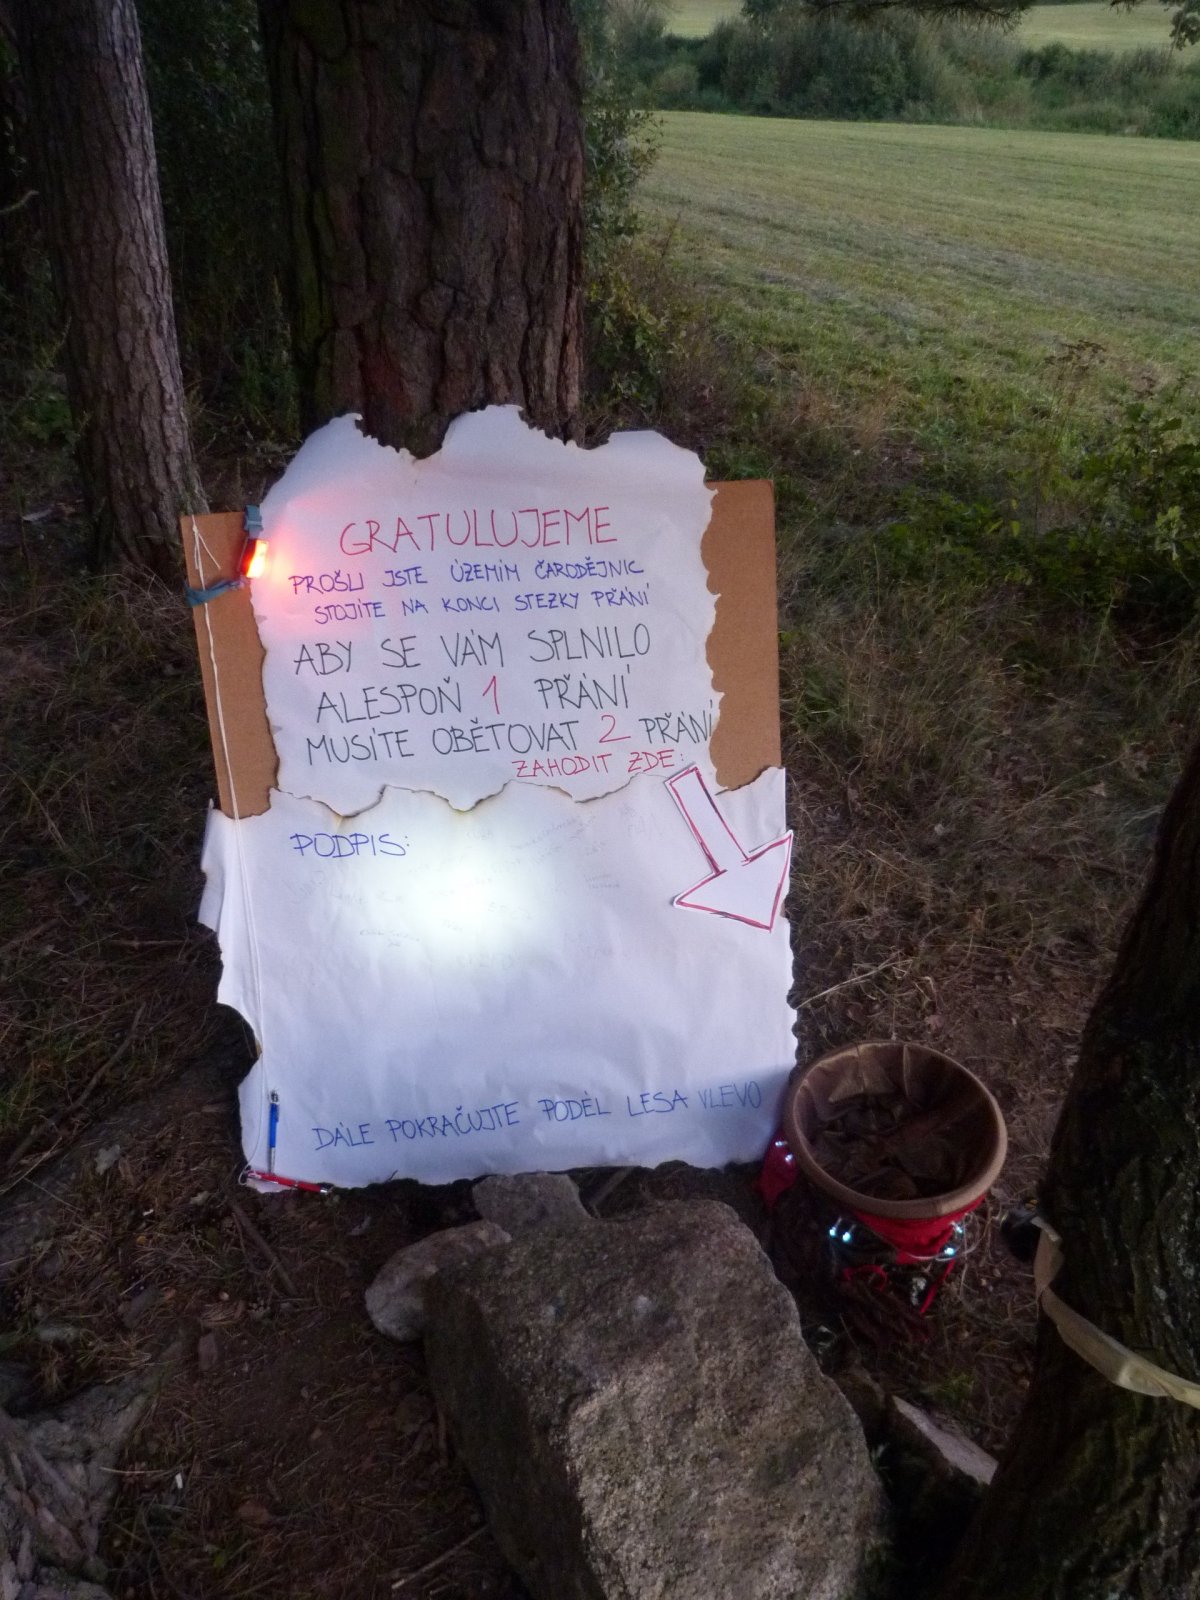 GRATULUJEME
PROŠLI JSTE ÚZEMÍM ČARODĚJNIC
STOJÍTE NA KONCI STEZKY PŘÁNÍ
ABY SE VÁM SPLNILO
ALESPOŇ 1 PŘÁNÍ
MUSÍTE OBĚTOVAT 2 PŘÁNÍ
ZAHODIT ZDE:
PODPIS:
DÁLE POKRAČUJTE PODÉL LESA VLEVO